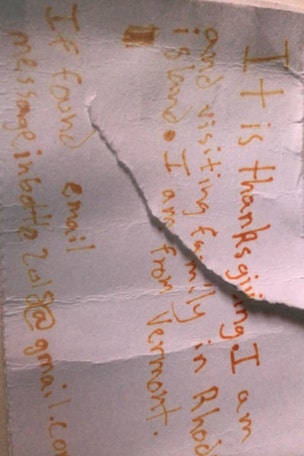 It is thanksgiving I am
and visiting family in Rhod
island. I am from Vermont.
If found email
messageinbottle2018@gmail.co